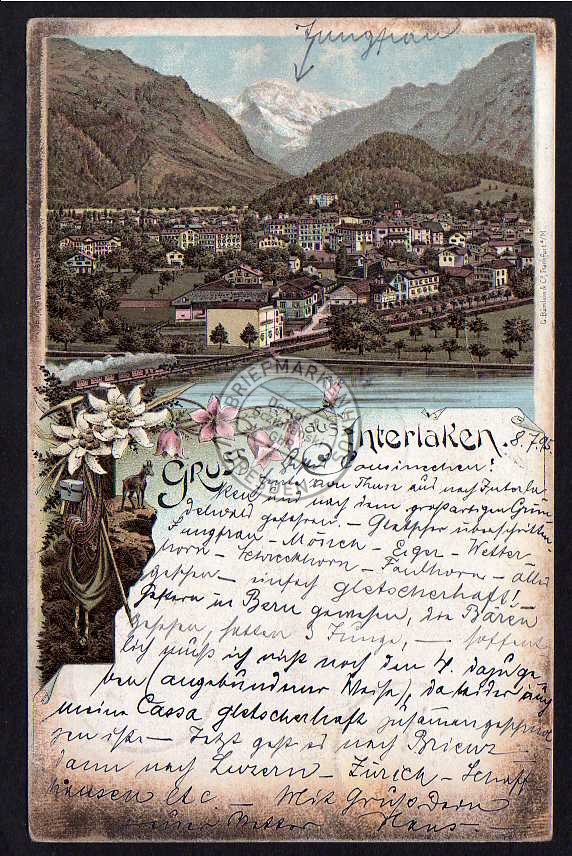 Jungfrau
BRIEFMARKEN
Gruss aus Interlaken.
8.7.95.
Liebes Cousinchen!
Heute von Thun aus nach Interla-
ken und nach dem großartigen Grin-
delwald gefahren. – Gletscher überschritten
Jungfrau – Mönch – Eiger – Wetter-
horn – Schreckhorn – Faulhorn – alles
gesehen – einfach gletscherhaft! –
Gestern in Bern gewesen, die Bären
gesehen, hatten 3 Junge, – hoffent
lich muß ich nicht noch den 4. dazu ge
ben (angebundener Weise), da leider
meine Cassa gletscherhaft zusammengeschmol
zen ist. – Jetzt geht es nach Brienz
dann nach Luzern – Zürich – Schaff-
hausen etc – Mit Gruß Dein
Vetter Hans